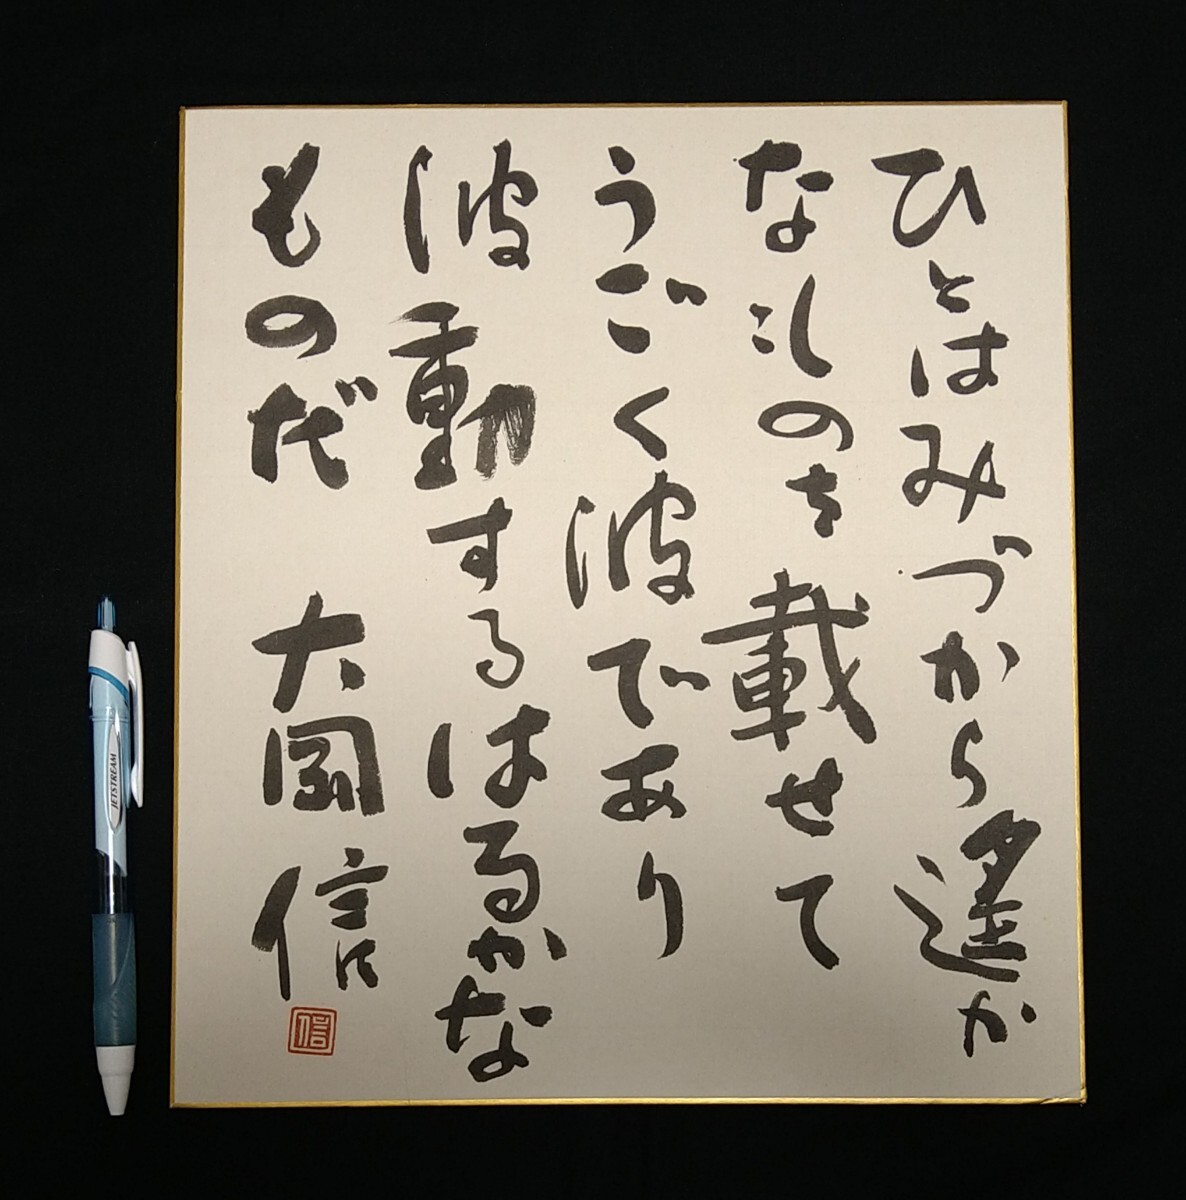 ひとはみづから遙か
なものを載せて
うごく波であり
波動するはるかな
ものだ 大岡信
信
JETSTREAM